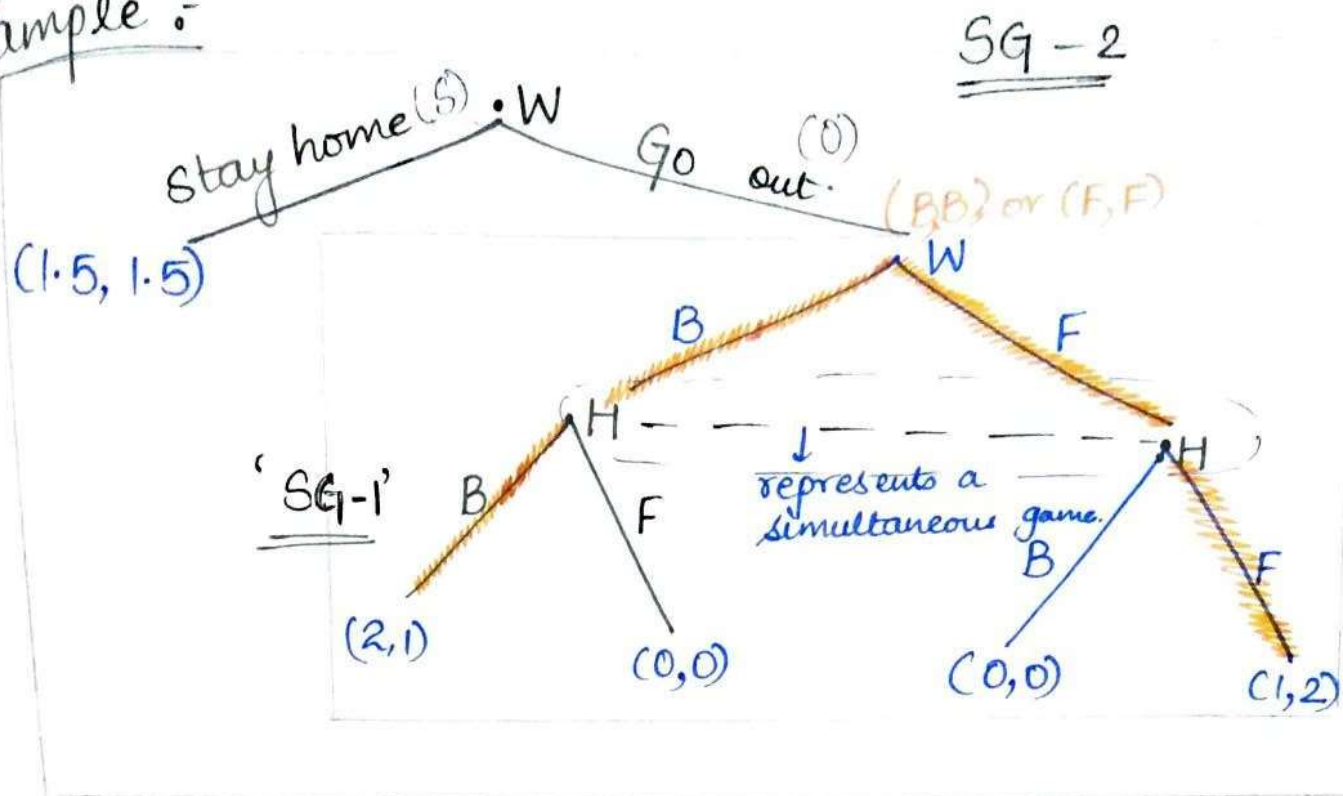 ample :-
SG - 2
Stay home (S)
. W
Go out. (O)
(1.5, 1.5)
(B,B) or (F,F)
W
B
F
H
H
'SG-1'
B
F
represents a
simultaneous game.
B
F
(2,1)
(0,0)
(0,0)
(1,2)